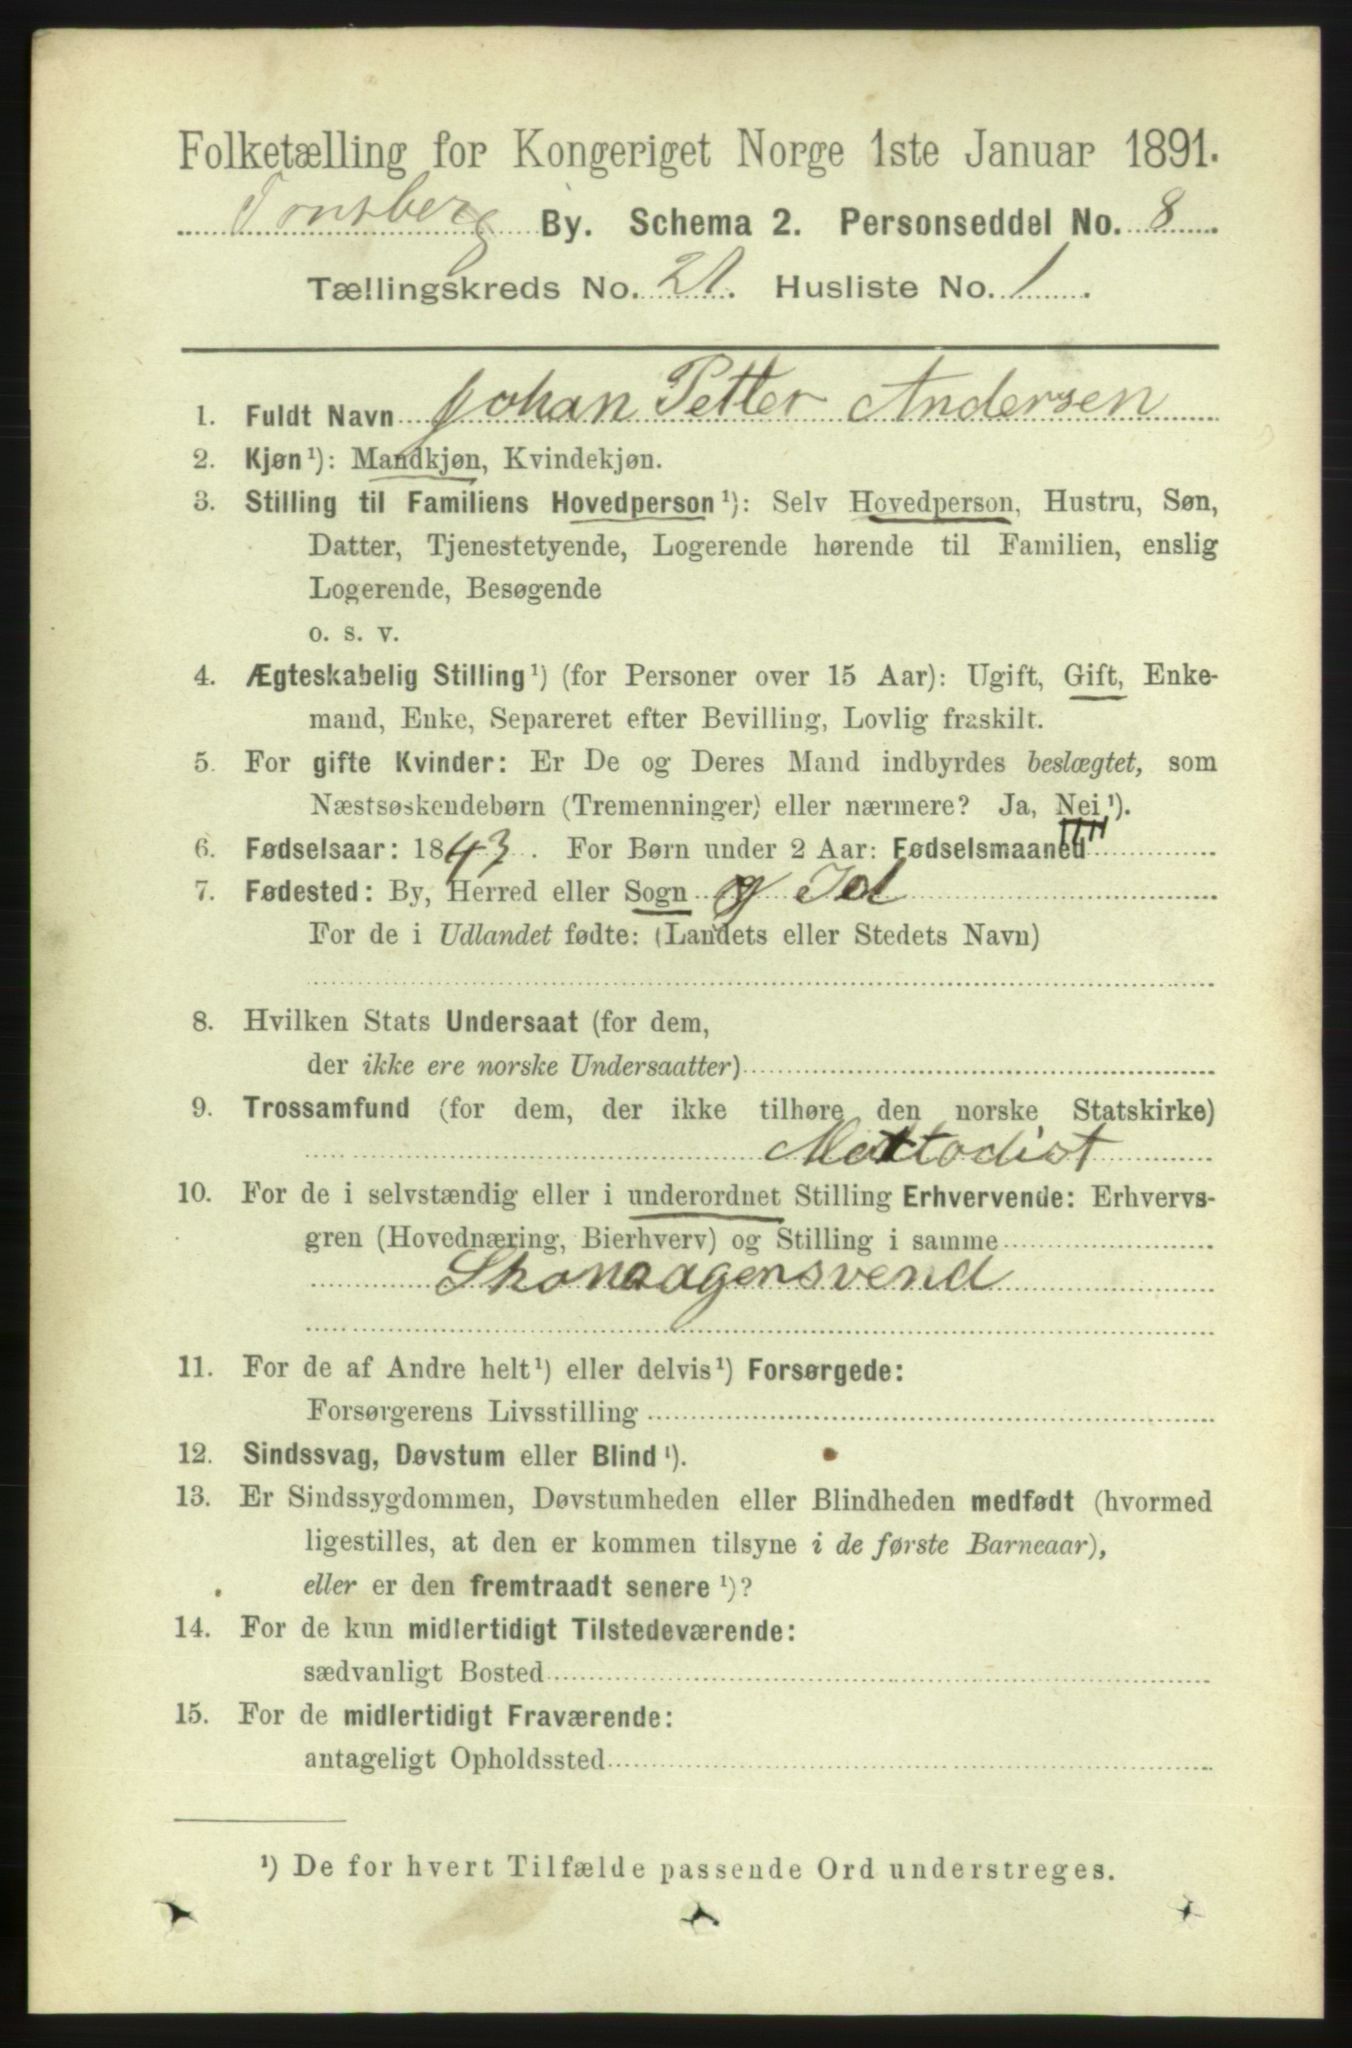 Folketælling for Kongeriget Norge 1ste Januar 1891.
Tønsberg By. Schema 2. Personseddel No. 8
Tællingskreds No. 21. Husliste No. 1
1. Fuldt Navn Johan Petter Andersen
2. Kjøn¹): Mandkjøn, Kvindekjøn.
3. Stilling til Familiens Hovedperson¹): Selv Hovedperson, Hustru, Søn,
Datter, Tjenestetyende, Logerende hørende til Familien, enslig
Logerende, Besøgende
o. s. v.
4. Ægteskabelig Stilling¹) (for Personer over 15 Aar): Ugift, Gift, Enke-
mand, Enke, Separeret efter Bevilling, Lovlig fraskilt.
5. For gifte Kvinder: Er De og Deres Mand indbyrdes beslægtet, som
Næstsøskendebørn (Tremenninger) eller nærmere? Ja, Nei¹).
6. Fødselsaar: 1843. For Børn under 2 Aar: Fødselsmaaned
7. Fødested: By, Herred eller Sogn og Id
For de i Udlandet fødte: (Landets eller Stedets Navn)
8. Hvilken Stats Undersaat (for dem,
der ikke ere norske Undersaatter)
9. Trossamfund (for dem, der ikke tilhøre den norske Statskirke)
Mettodist
10. For de i selvstændig eller i underordnet Stilling Erhvervende: Erhvervs-
gren (Hovednæring, Bierhverv) og Stilling i samme
Skomagersvend
11. For de af Andre helt¹) eller delvis¹) Forsørgede:
Forsørgerens Livsstilling
12. Sindssvag, Døvstum eller Blind¹).
13. Er Sindssygdommen, Døvstumheden eller Blindheden medfødt (hvormed
ligestilles, at den er kommen tilsyne i de første Barneaar),
eller er den fremtraadt senere¹)?
14. For de kun midlertidigt Tilstedeværende:
sædvanligt Bosted
15. For de midlertidigt Fraværende:
antageligt Opholdssted
¹) De for hvert Tilfælde passende Ord understreges.